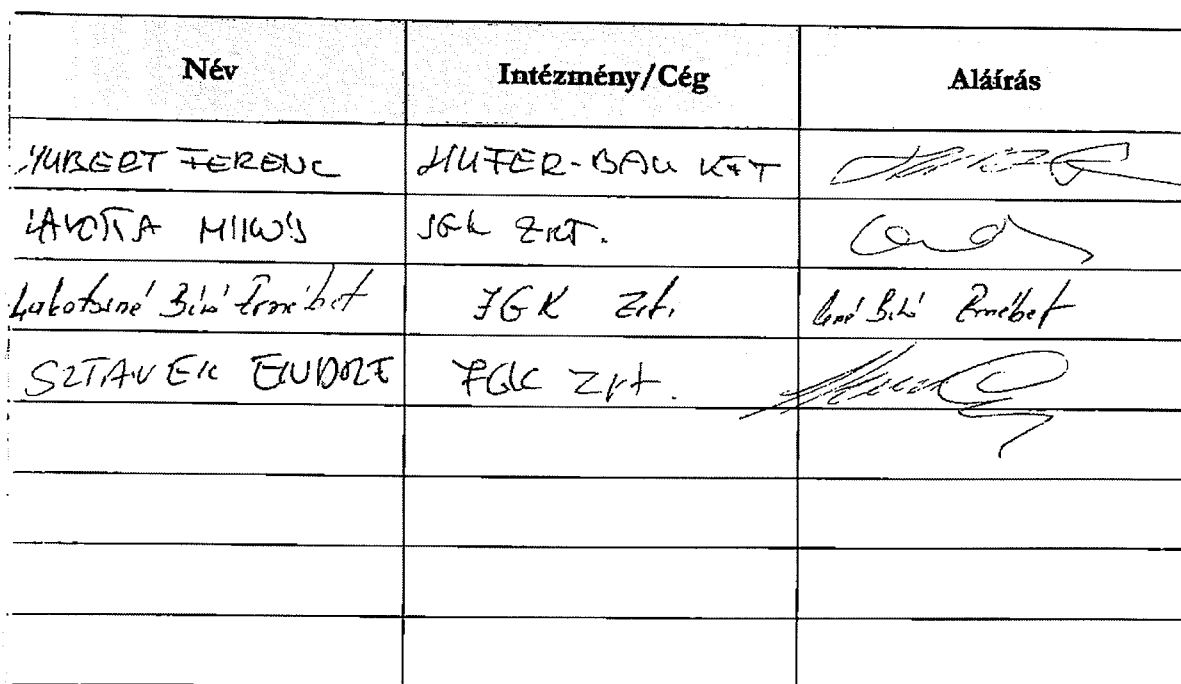 Név Intézmény/Cég Aláírás
HUBERT FERENC HUFER-BAU KFT
LAVOTTA MIKLÓS JGK ZRT.
Lakatosné Biró Ernébet JGK Zrt. Ernébet
SZTANEK ENDRE JGK Zrt.